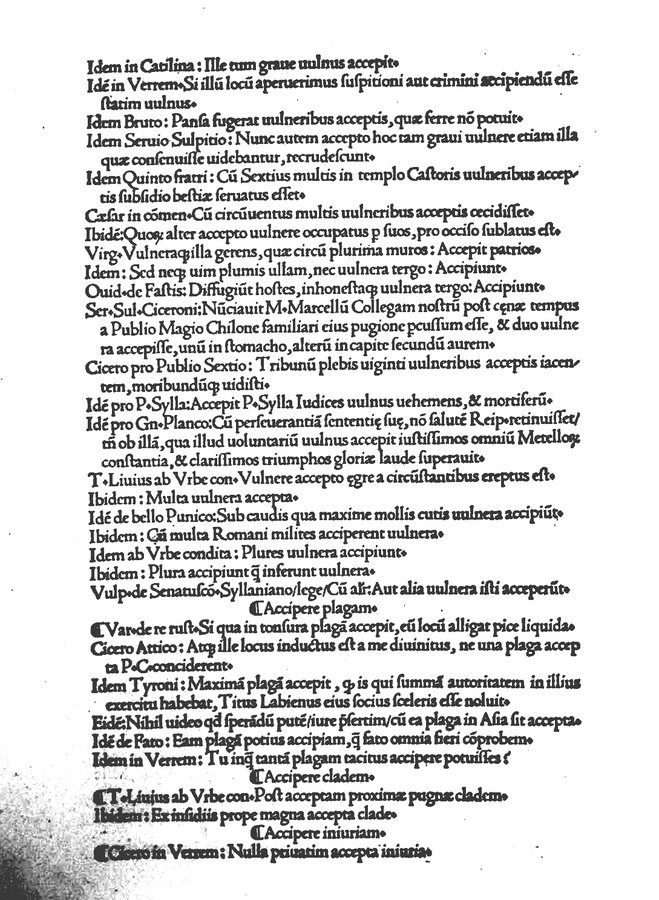 Idem in Catilina: Ille tum graue uulnus accepit.
Idē in Verrem. Si illū locū aperuerimus suspitioni aut crimini accipiendū esse
statim uulnus.
Idem Bruto: Pansa fugerat uulneribus acceptis, quæ ferre nō potuit.
Idem Seruio Sulpitio: Nunc autem accepto hoc tam graui uulnere etiam illa
quæ consenuisse uidebantur, recrudescunt.
Idem Quinto fratri: Cū Sextius multis in templo Castoris uulneribus accep-
tis subsidio bestiæ seruatus esset.
Cæsar in cōmen. Cū circūuentus multis uulneribus acceptis cecidisset.
Ibidē: Quoꝝ alter accepto uulnere occupatus p suos, pro occiso sublatus est.
Virg. Vulneraqꝫ illa gerens, quæ circū plurima muros: Accepit patrios.
Idem: Sed neqꝫ uim plumis ullam, nec uulnera tergo: Accipiunt.
Ouid. de Fastis: Diffugiūt hostes, inhonestaqꝫ uulnera tergo: Accipiunt.
Ser. Sul. Ciceroni: Nūciauit M. Marcellū Collegam nostrū post cenæ tempus
a Publio Magio Chilone familiari eius pugione pcussum esse, & duo uulne
ra accepisse, unū in stomacho, alterū in capite secundū aurem.
Cicero pro Publio Sextio: Tribunū plebis uiginti uulneribus acceptis iacen-
tem, moribundūqꝫ uidisti.
Idē pro P. Sylla: Accepit P. Sylla Iudices uulnus uehemens, & mortiferū.
Idē pro Gn. Planco: Cū perseuerantiā sententię suę, nō salutē Reip. retinuisset/
tn̄ ob illā, qua illud uoluntariū uulnus accepit iustissimos omniū Metelloꝝ
constantia, & clarissimos triumphos gloriæ laude superauit.
T. Liuius ab Vrbe con. Vulnere accepto ęgre a circūstantibus ereptus est.
Ibidem: Multa uulnera accepta.
Idē de bello Punico: Sub caudis qua maxime mollis cutis uulnera accipiūt.
Ibidem: Cū multa Romani milites acciperent uulnera.
Idem ab Vrbe condita: Plures uulnera accipiunt.
Ibidem: Plura accipiunt q̄ inferunt uulnera.
Vulp. de Senatuscō. Syllaniano/lege/Cū alr̄: Aut alia uulnera isti acceperūt.
¶Accipere plagam.
¶Var. de re rust. Si qua in tonsura plagā accepit, eū locū alligat pice liquida.
Cicero Attico: Atqꝫ ille locus inductus est a me diuinitus, ne una plaga accep
ta P. C. conciderent.
Idem Tyroni: Maximā plagā accepit, qꝫ is qui summā autoritatem in illius
exercitu habebat, Titus Labienus eius socius sceleris esse noluit.
Eidē: Nihil uideo qd̄ sperādū putē/iure p̄sertim/cū ea plaga in Asia sit accepta.
Idē de Fato: Eam plagā potius accipiam, q̄ fato omnia fieri cōprobem.
Idem in Verrem: Tu inq̄ tantā plagam tacitus accipere potuisses?
¶Accipere cladem.
¶T. Liuius ab Vrbe con. Post acceptam proximæ pugnæ cladem.
Ibidem: Ex insidiis prope magna accepta clade.
¶Accipere iniuriam.
¶Cicero in Verrem: Nulla priuatim accepta iniuria.